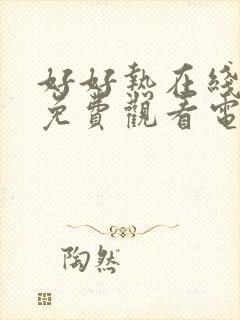 好好熱在綫
免費觀看電
陶然